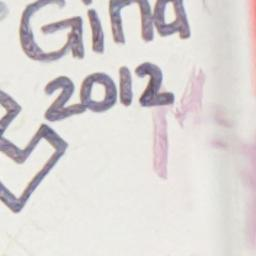 Gina
2012